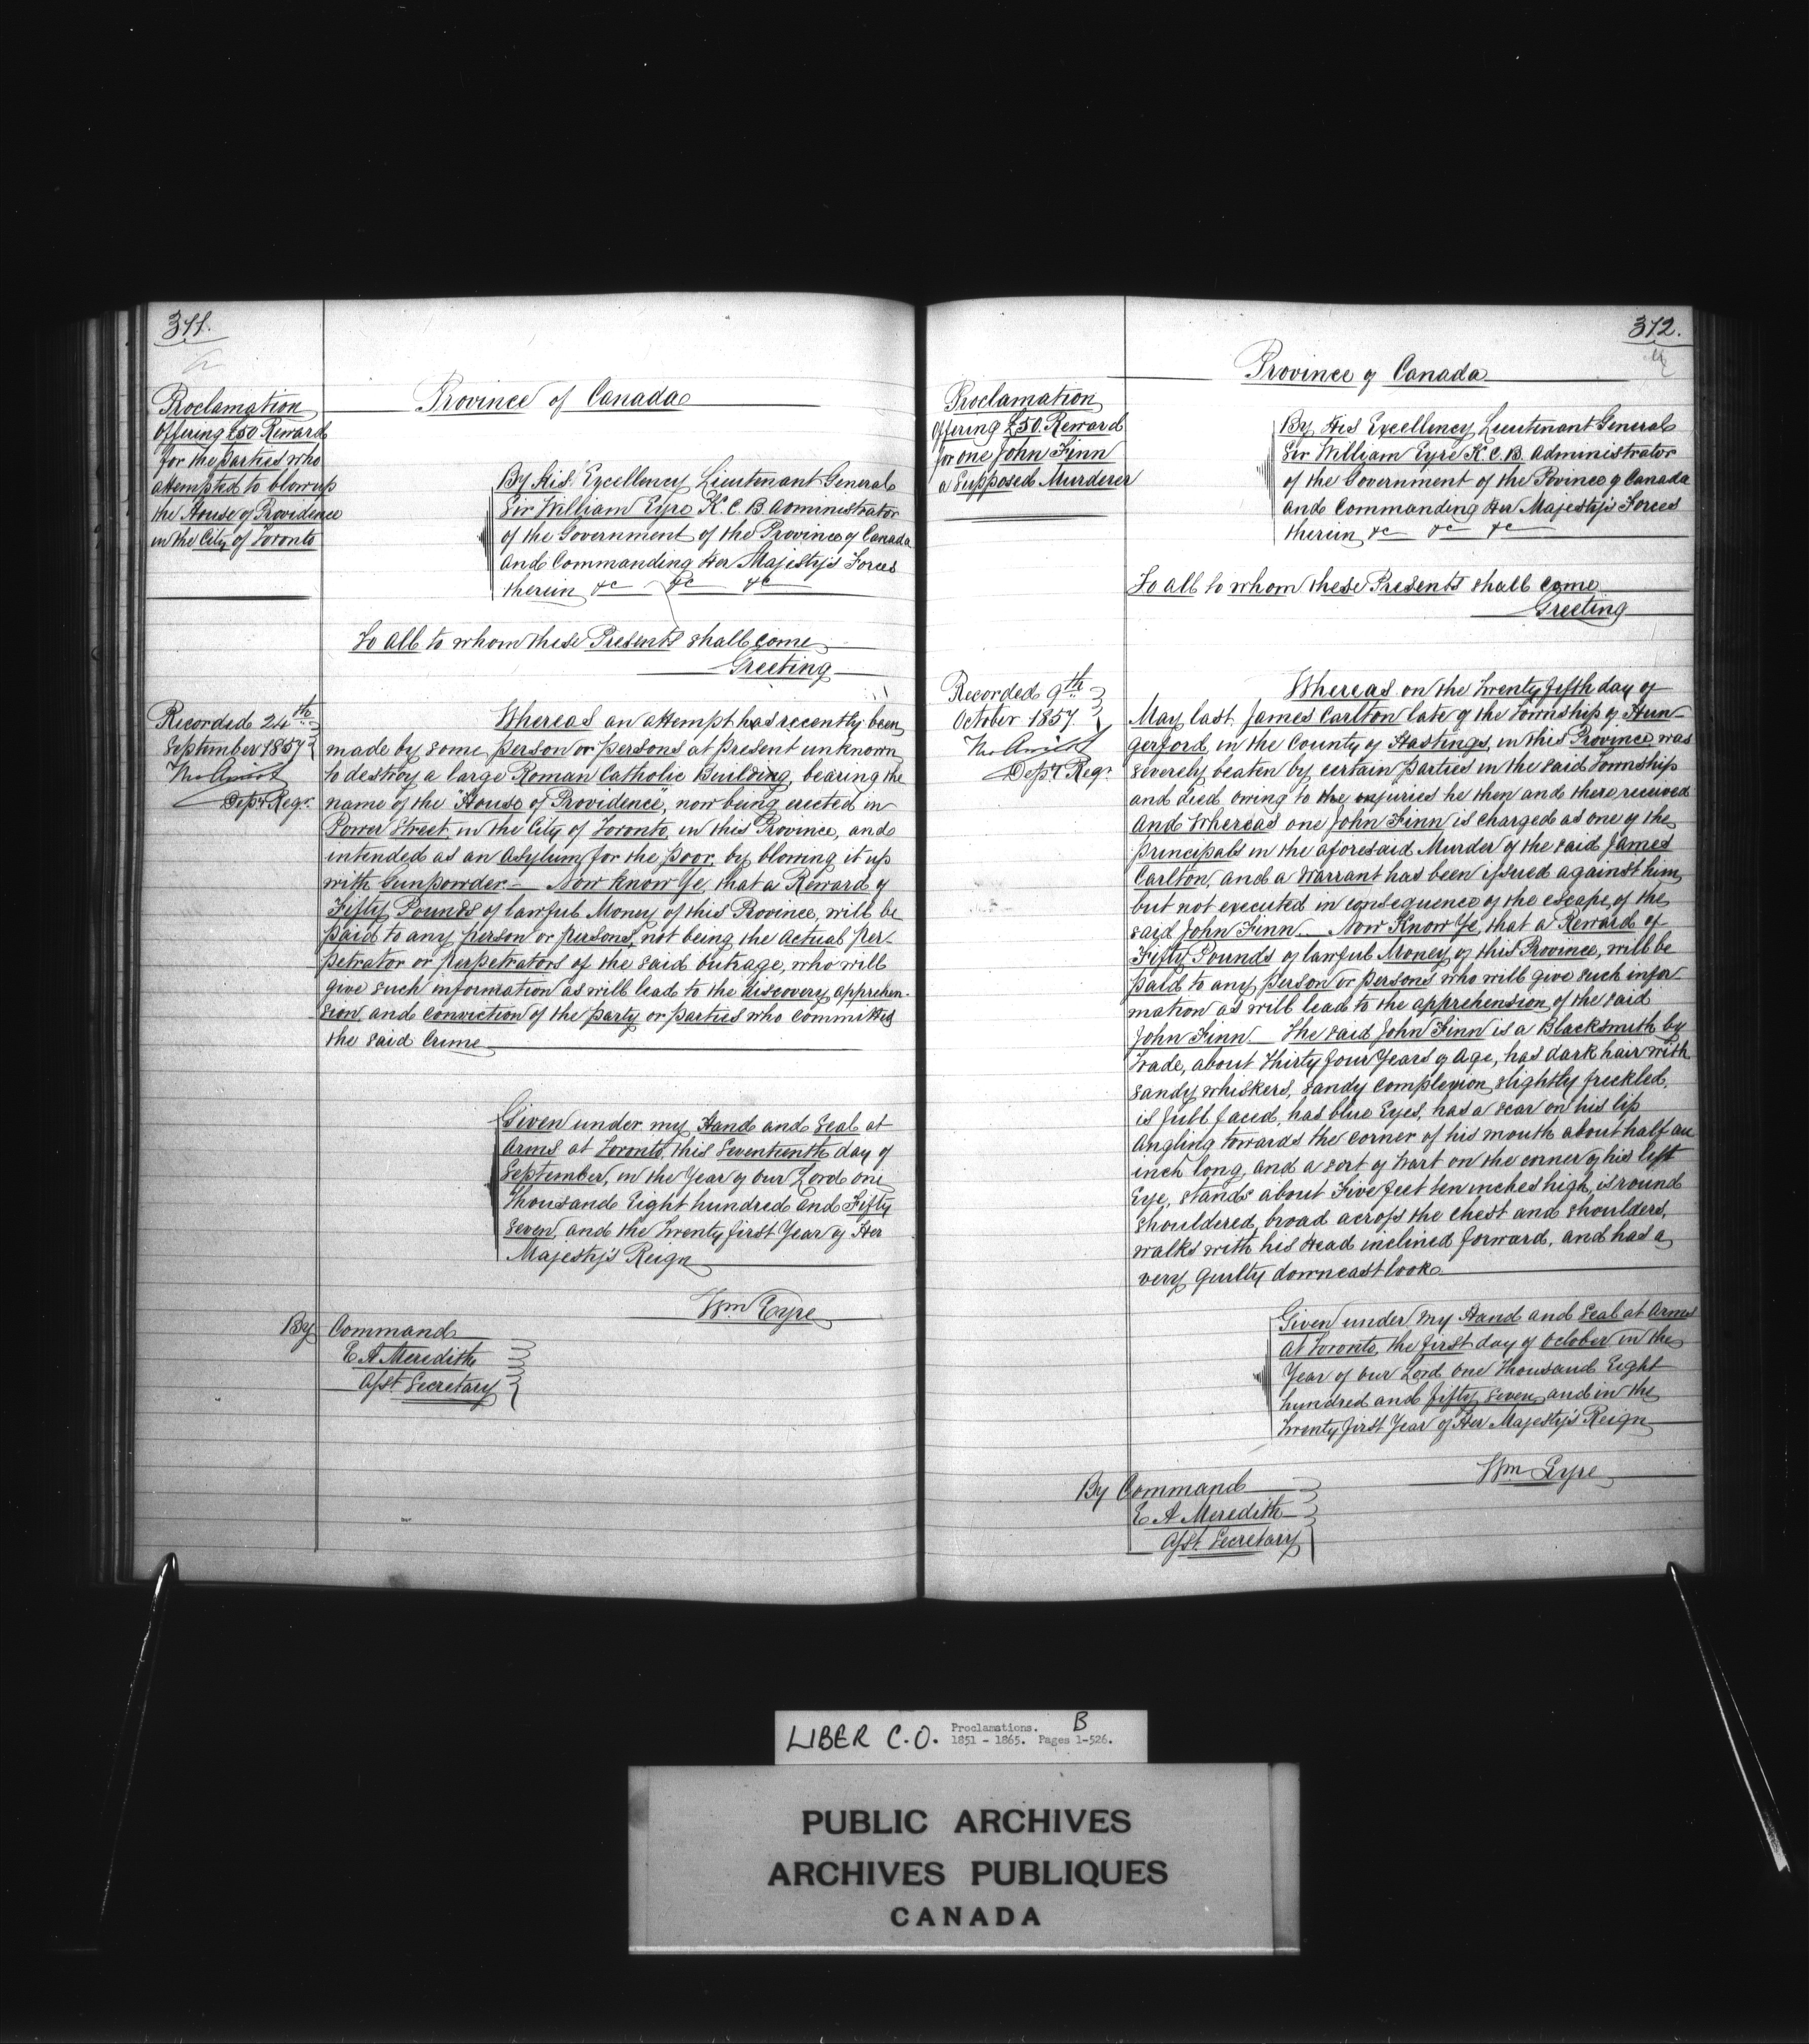 371.
Proclamation
Offering £50 Reward
for the Parties who
attempted to blow up
the House of Providence
in the City of Toronto
Province of Canada
By His Excellency Lieutenant General
Sir William Eyre K. C. B. Administrator
of the Government of the Province of Canada
and Commanding Her Majesty's Forces
therein &c &c &c
To all to whom these Presents shall come
Greeting
Recorded 24th
September 1857
Depy Regr.
Whereas an attempt has recently been
made by some person or persons at present unknown
to destroy a large Roman Catholic Building, bearing the
name of the "House of Providence", now being erected in
Power Street, in the City of Toronto, in this Province, and
intended as an Asylum for the poor, by blowing it up
with Gunpowder. — Now know Ye, that a Reward of
Fifty Pounds of lawful Money of this Province, will be
paid to any person or persons, not being the actual per-
petrator or perpetrators of the said outrage, who will
give such information as will lead to the discovery apprehen-
sion, and conviction of the party or parties who committed
the said Crime
Given under my Hand and Seal at
Arms at Toronto, this Seventeenth day of
September, in the Year of our Lord one
Thousand Eight hundred and Fifty
Seven, and the Twenty first Year of Her
Majesty's Reign
Wm Eyre
By Command
E A Meredith
Asst Secretary
372.
Proclamation
Offering £50. Reward
for one John Finn
a Supposed Murderer
Province of Canada
By His Excellency Lieutenant General
Sir William Eyre K. C. B. Administrator
of the Government of the Povince of Canada
and Commanding Her Majesty's Forces
therein &c &c &c
To all to whom these Presents shall come
Greeting
Recorded 9th
October 1857.
Depy Regr.
Whereas on the Twenty fifth day of
May last James Carlton late of the Township of Hun-
gerford, in the County of Hastings, in this Province was
severely beaten by certain parties in the said Township
and died owing to the injuries he then and there received
And Whereas one John Finn is charged as one of the
principals in the aforesaid Murder of the said James
Carlton, and a Warrant has been issued against him,
but not executed in consequence of the escape of the
said John Finn. — Now Know Ye, that a Reward of
Fifty Pounds of lawful Money of this Province, will be
paid to any person or persons who will give such infor
mation as will lead to the apprehension of the said
John Finn — The said John Finn is a Blacksmith by
Trade, about Thirty four Years of Age, has dark hair with
sandy whiskers, sandy complexion slightly freckled,
is full faced, has blue Eyes, has a scar on his lip
Angling towards the corner of his mouth about half an
inch long, and a sort of Wart on the corner of his left
Eye, stands about Five feet ten inches high, is round
shouldered, broad across the chest and shoulders,
walks with his Head inclined forward, and has a
very guilty downcast look.
Given under my Hand and Seal at Arms
at Toronto, the first day of October in the
Year of our Lord One Thousand Eight
hundred and fifty Seven, and in the
Twenty first Year of Her Majesty's Reign
Wm Eyre
By Command
E A Meredith
Asst. Secretary
LIBER C.O. Proclamations. B
1851 - 1865. Pages 1-526.
PUBLIC ARCHIVES
ARCHIVES PUBLIQUES
CANADA